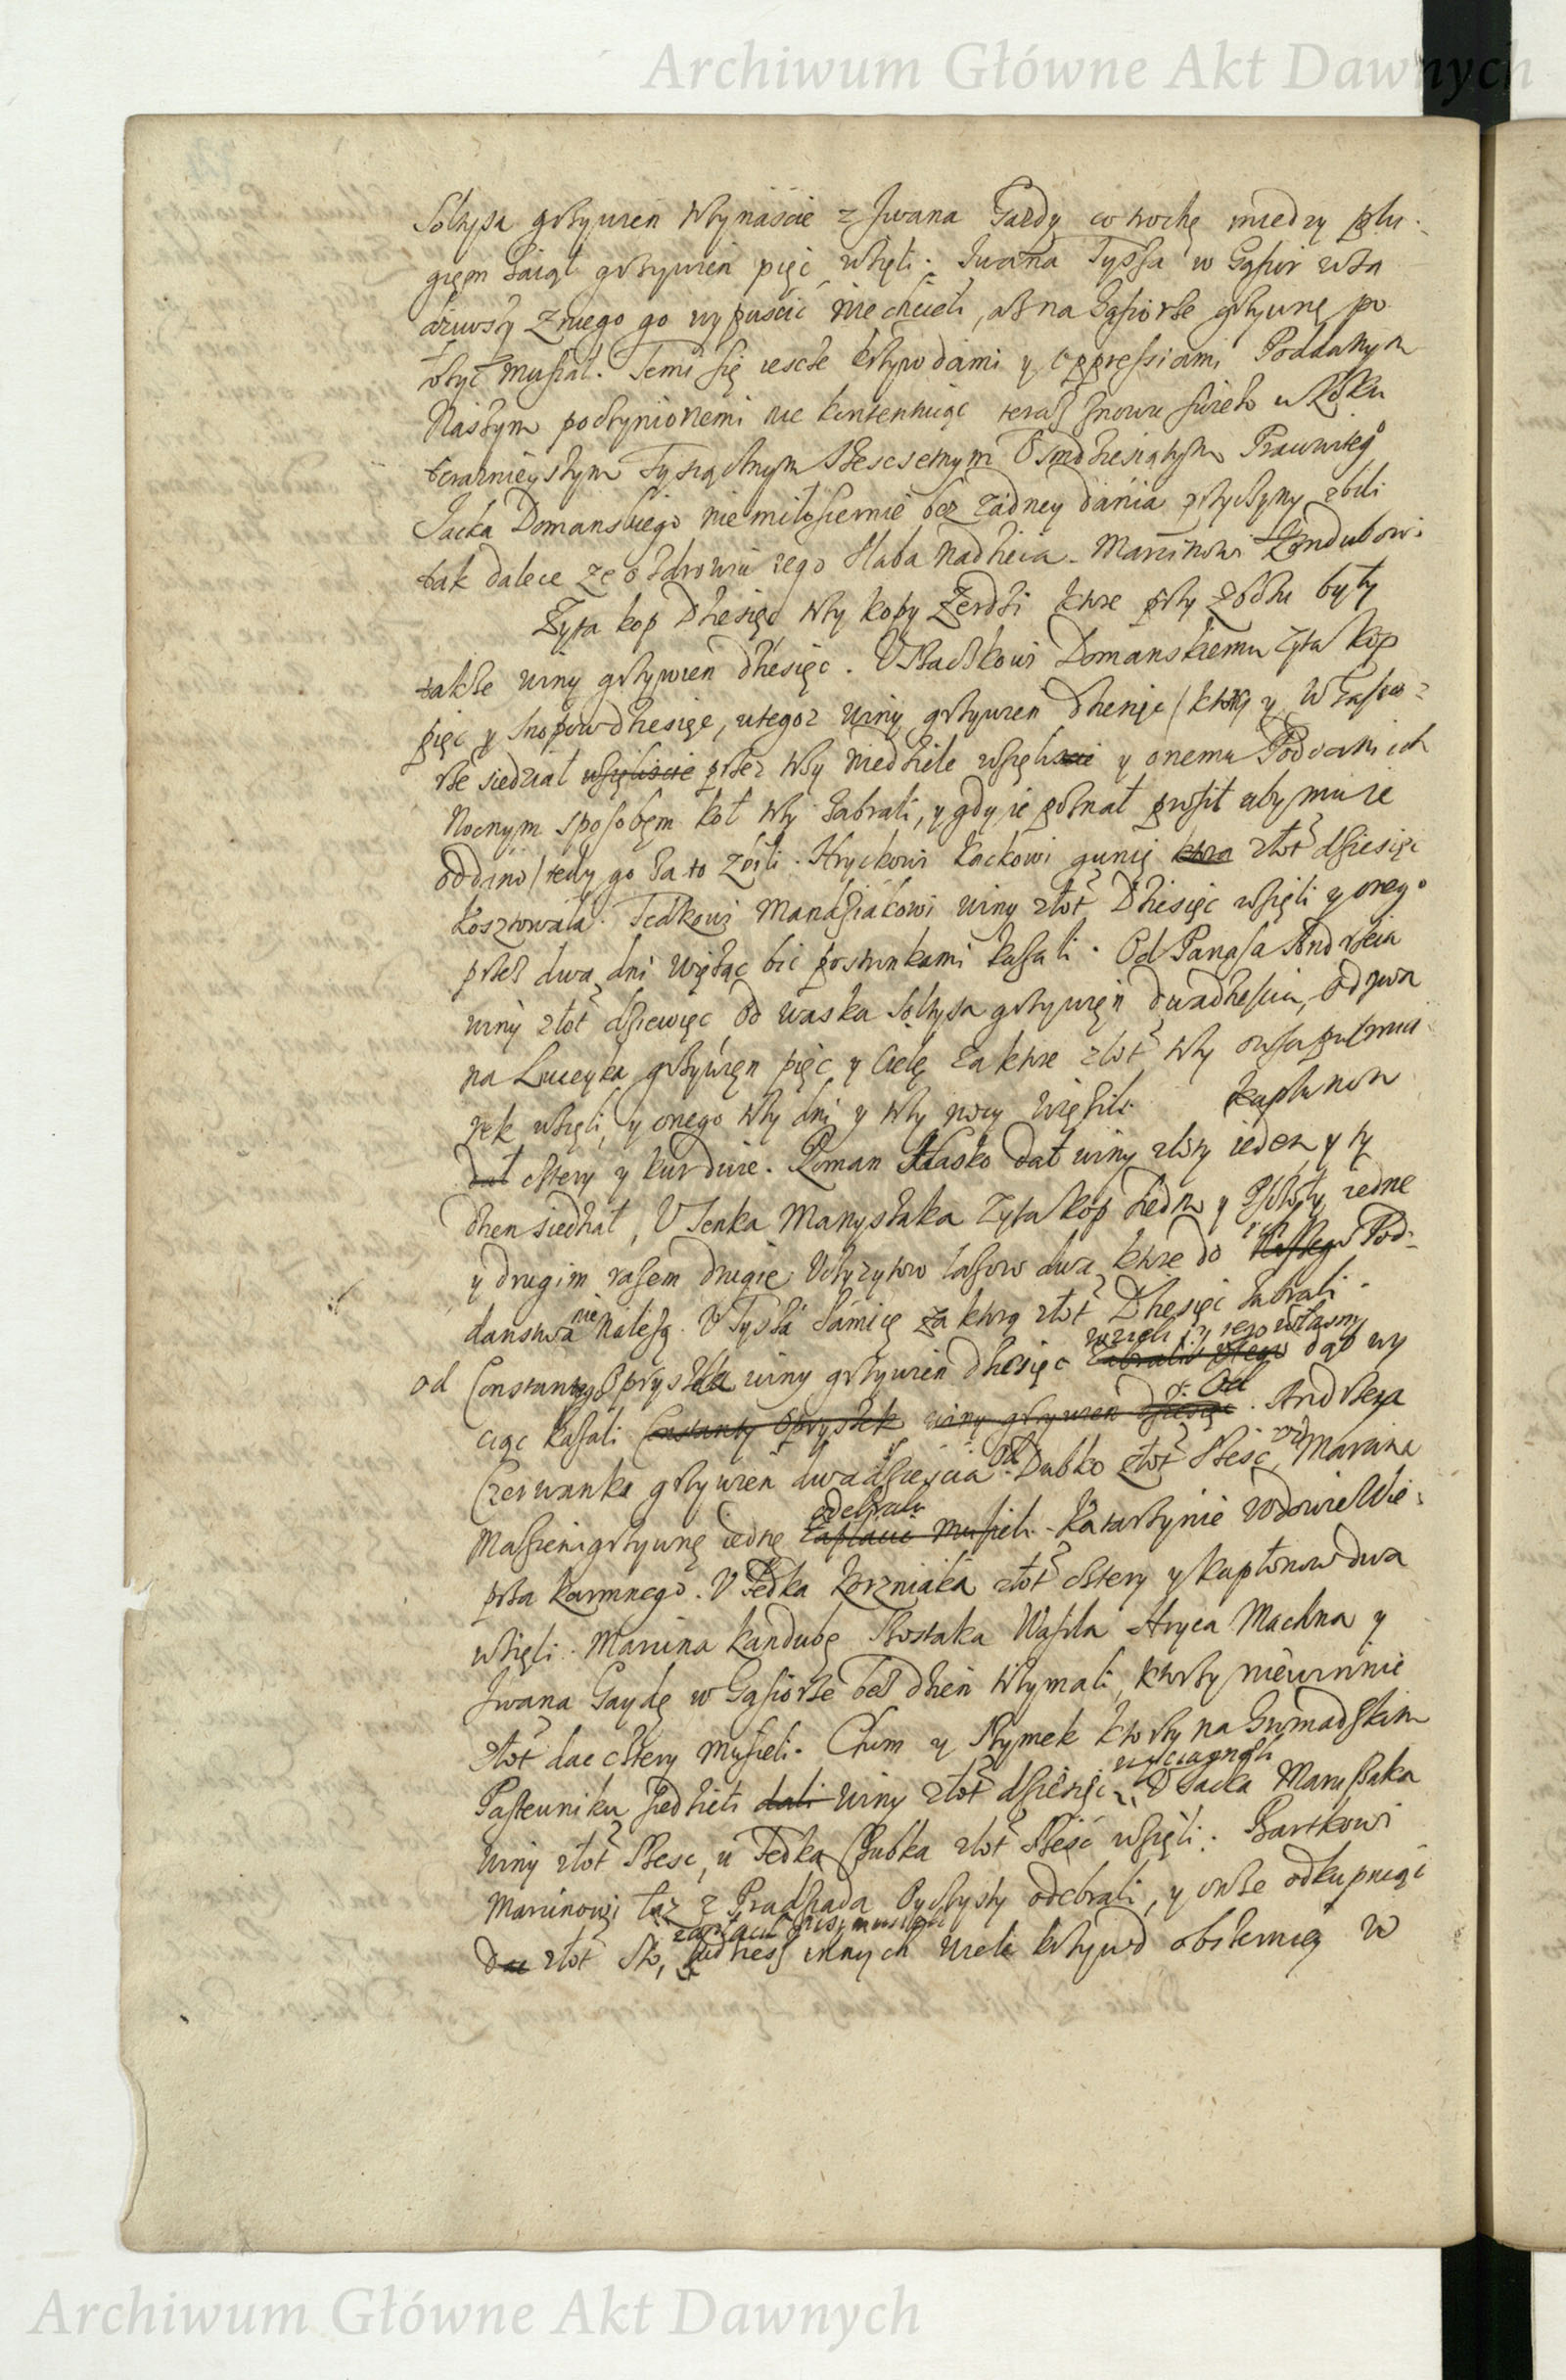 Archiwum Główne Akt Dawnych
Sołtysa grzywien trzynaście z Iwana Gazdy co trochę miedzy płu-
giem zaiął grzywien pięć wzięli. Iwana Tyssa w Gąsior wsa
dziwszy z niego go wypuścić nie chcieli, aż na Gąsiorze grzywnę po
łożyć musiał. Temi się ieście krzywdami y oppressiami Poddanym
Naszym poczynionemi nie kontentuiąc teraz znowu świeżo w Roku
teraznieyszym Tysiącznym Szescsetnym Osmdziesiątym Pracowitego
Jacka Domanskiego niemiłosiernie bez żadney dania przyczyny zbili
tak dalece że o zdrowiu iego słaba nadzieia. Marcinowi Kandubowi
Żyta kop Dziesięć trzy kopy Żerdzi ktore przy zbożu były
także winy grzywien dziesięć. U Stackowi Domanskiemu żyta kop
pięc y snopow dziesięc, u tegoz winy grzywien dziesięc / ktory y w Gąsio-
rze siedział wzięliscie przez trzy niedziele wzięli y onemu Podcami ich
Nocnym sposobem koł trzy zabrali, y gdy ie poznał prosił aby mu ie
oddano / tedy go za to zbili. Hryckowi Łackowi gunię ktora złot dziesięc
kosztowała. Fedkowi Manasiakowi winy złot Dziesięc wzięli y onego
przez dwa dni więżąc bic postrunkami kazali. Od Panasa Andrzeia
winy złot dziewięc od Waska Sołtysa grzywien dwadziescia, od Iwa
na Luceyka grzywien pięc y Cielę za ktore złot trzy
rek wzięli, y onego trzy dni y trzy nocy więzili. kapłonow
dał cztery y kur dwie. Roman Stasko dał winy złoty ieden y ty
dzien siedział, U Ienka Manyszaka żyta kop iedna y iedne
y drugim razem drugie. Uchrzytow lasow dwa ktore do ich Naszego Pod-
danstwa nie należą. U Tyssa Samicę za ktorą złot Dziesięc zabrali.
od Constantego Opryszka winy grzywien dziesięc wzieli y iego własny zabrali dąb wy
ciąc kazali Constanty Opryszek winy grzywien dziesięc. Od Andrzeya
Czerwanka grzywien dwadziescia. Od Dubko złot szesc od Marcina
Masieni grzywnę iednę odebrali zapłacic musieli. Katarzynie Wdowie Wie-
prza karmnego. U Fedka Korzniaka złot cztery y kapłonow dwa
wzięli. Marcina Kandubę Kostaka Wasila Hryca Machna y
Iwana Gaydę w Gąsiorze bez dzień trzymali, ktorzy niewinnie
złot dac cztery musieli. Chim y Szymek ktorzy na Gromadzkim
Pastewniku siedzieli dali winy złot dziesięc wyciągnęli. U Iacka Marussaka
winy złot szesc, u Fedka Czubka złot szesc wzięli. Bartkowi
Marcinowi łaz z Pradziada Oyczysty odebrali, y onże odkupuiąc
dac złot sto, zapłacic musiał tudziesz innych wiele krzywd obszerniey w
Archiwum Główne Akt Dawnych